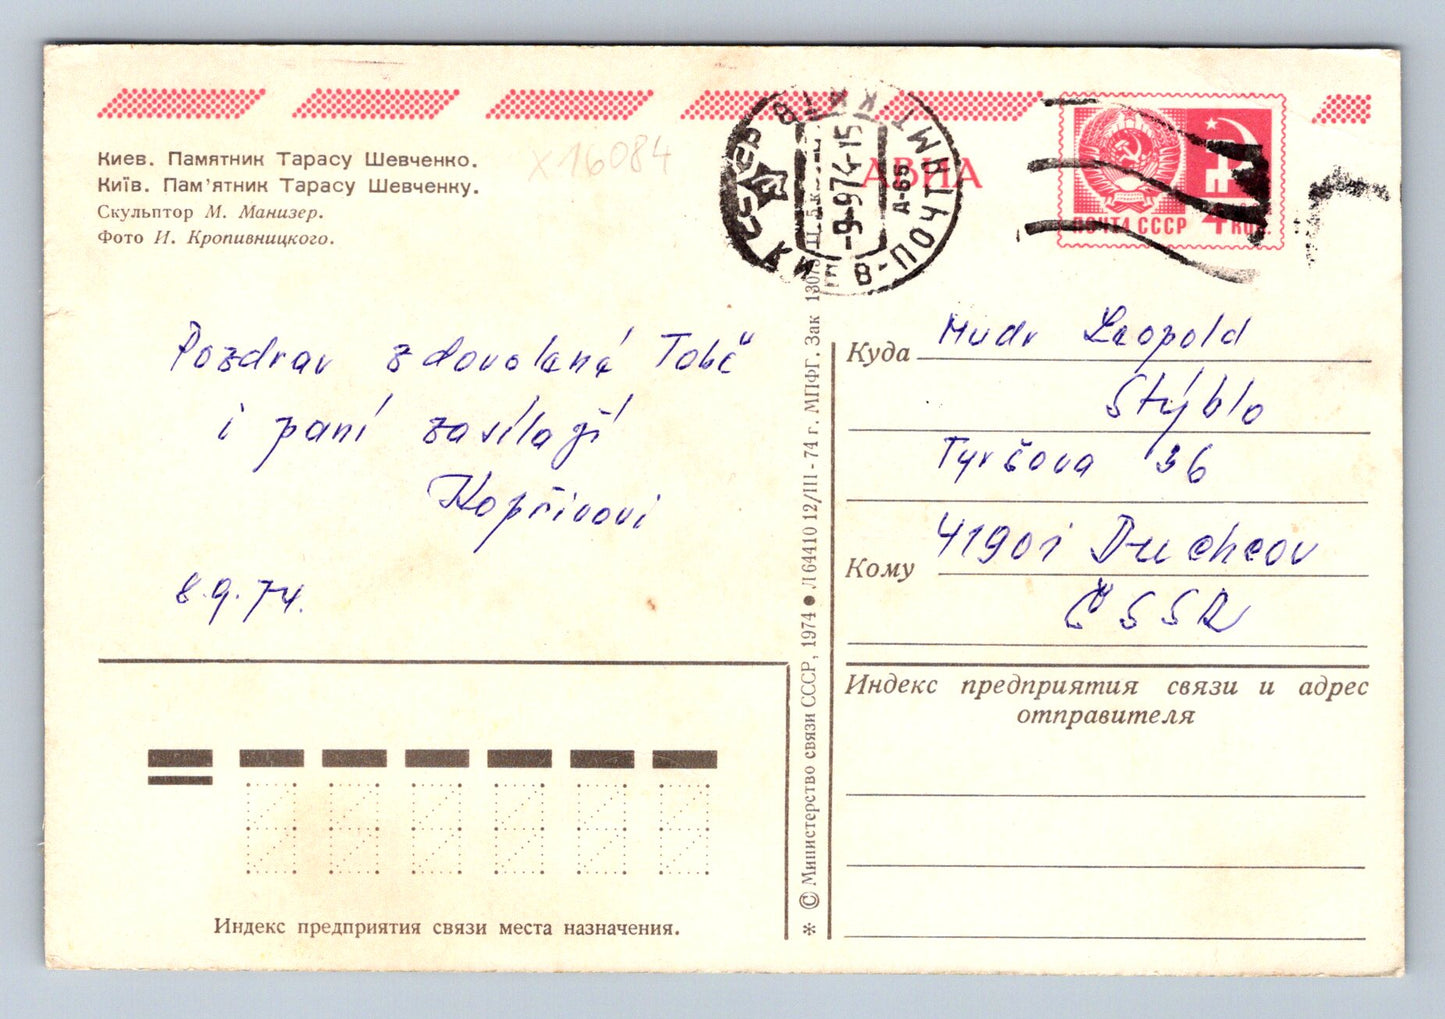 Киев. Памятник Тарасу Шевченко.
Київ. Пам'ятник Тарасу Шевченку.
Скульптор М. Манизер.
Фото И. Кропивницкого.
X16084
АВИА
ПОЧТА СССР
-9-974-15
А-65
КИЕВ-ПОЧТАМТ
Pozdrav z dovolené Tobě
i paní zasílají
Kopřivovi
8.9.74.
Куда
Mudr Leopold
Stýblo
Tyršova 36
Кому
41901 Duchcov
ČSSR
Индекс предприятия связи и адрес
отправителя
Индекс предприятия связи места назначения.
* © Министерство связи СССР, 1974 ● Л 64410 12/III-74 г. МПФГ. Зак